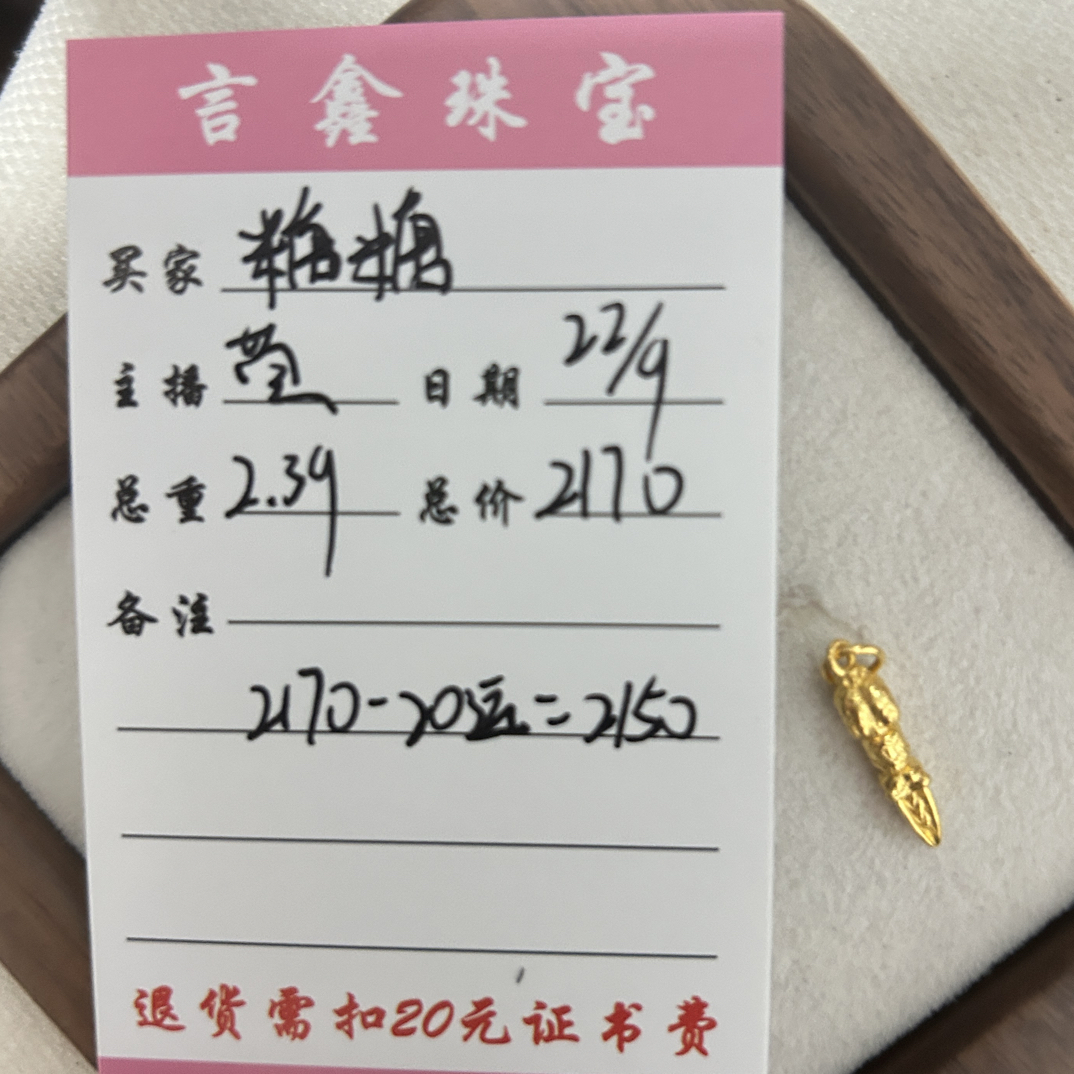 言鑫珠宝
买家 糖糖
主播 莹 日期 22/9
总重 2.39 总价 2170
备注
2170-20运=2150
退货需扣20元证书费